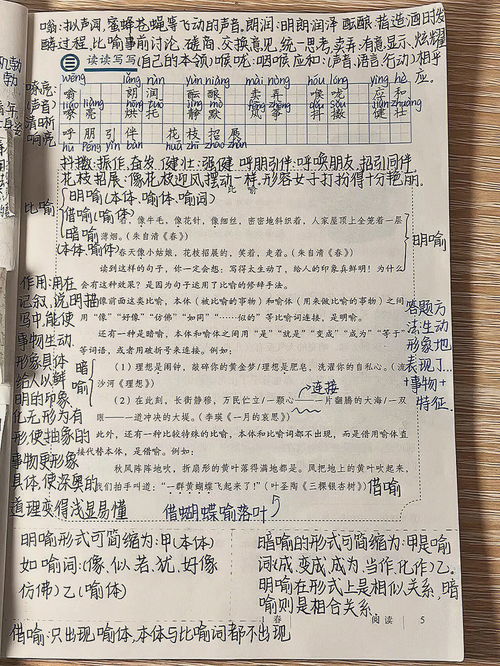 嗡:拟声词,蜜蜂苍蝇等飞动的声音.朗润:明朗润泽 酝酿:指造酒时发
酵过程,比喻事前讨论,磋商,交换意见,统一思考.卖弄:有意显示、炫耀
(自己的本领)喉咙:咽喉 应和:(声音.语言.行动)相呼
应.
三 读读写写
wēng lǎng rùn yùn niàng mài nòng hóu lóng yìng hè
嗡 朗润 酝酿 卖弄 喉咙 应和
liáo liàng hōng tuō jìng mò fēng zhēng dǒu sǒu jiàn zhuàng
嘹亮 烘托 静默 风筝 抖擞 健壮
呼朋引伴 花枝招展
hū péng yǐn bàn huā zhī zhāo zhǎn
嘹亮:
(声音)
清晰
响亮
抖擞:振作.奋发.健壮:强健 呼朋引伴:呼唤朋友,招引同伴
花枝招展:像花枝迎风摆动一样.形容女子打扮得十分艳丽.
比喻
明喻(本体.喻体.喻词)
借喻(喻体)
暗喻
(本体.喻体)
像牛毛,像花针,像细丝,密密地斜织着,人家屋顶上全笼着一层
薄烟。(朱自清《春》)
春天像小姑娘,花枝招展的,笑着,走着。(朱自清《春》)
明喻
读到这样的句子,你一定会想:写得太生动了,给人的印象真鲜明!为什么
会有这种效果?是因为句子运用了比喻的修辞手法。
像前面这类比喻,本体(被比喻的事物)和喻体(用来做比喻的事物)之间
用“像”“好像”“仿佛”“如同”“……似的”等比喻词连接,是明喻。
还有一种是暗喻,本体和喻体之间用“是”“就是”“变成”“成为”“等于”
等词语,或者用破折号来连接。例如:
(1)理想是闹钟,敲碎你的黄金梦/理想是肥皂,洗濯你的自私心。(流
沙河《理想》)
连接
(2)在此刻,长街静穆,万民伫立/一颗心——一片翻腾的大海/一双
眼——一道冲决的大堤。(李瑛《一月的哀思》)
暗
喻
此外,还有一种比较特殊的比喻,本体和比喻词都不出现,而是借用喻体直
接代替本体,是借喻。例如:
秋风阵阵地吹,折扇形的黄叶落得满地都是。风把地上的黄叶吹起来,
我们拍手叫道:“一群黄蝴蝶飞起来了!”(叶圣陶《三棵银杏树》)
借喻
借蝴蝶喻落叶
作用:用在
记叙,说明描
写中,能使
事物生动.
形象具体
给人以鲜
明的印象
化无形为有
形,使抽象的
事物更形象
具体,使深奥的
道理变得浅显易懂
答题方
法:生动
形象地
表现了…
+事物+
特征.
明喻形式可简缩为:甲(本体)
如喻词:(像、似、若、犹、好像
仿佛)乙(喻体)
暗喻的形式可简缩为:甲是喻
词(成、变成、成为、当作.化作)乙.
明喻在形式上是相似关系,暗
喻则是相合关系.
借喻:只出现喻体,本体与比喻词都不出现
春 阅读 5